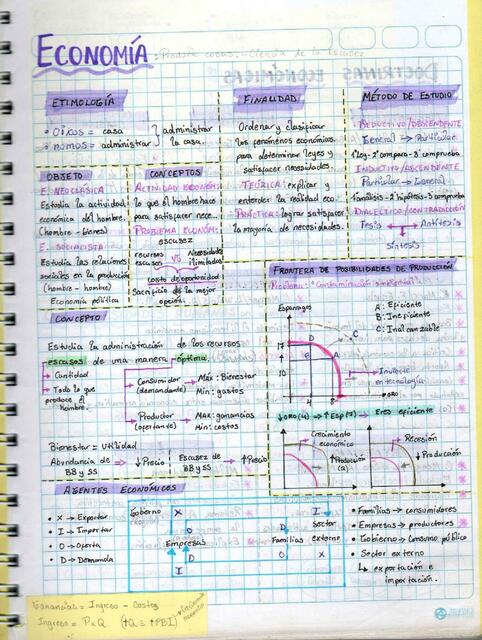 ECONOMÍA: Producir cosas - Ciencia de la Escasez
ETIMOLOGÍA
• Oicos = casa
• nomos = administrar
administrar
la casa.
FINALIDAD
Ordenar y clasificar
los fenómenos económicos.
para determinar leyes y
satisfacer necesidades.
TEÓRICA: explicar y
entender la realidad eco.
PRÁCTICA: lograr satisfacer
la mayoría de necesidades.
MÉTODO DE ESTUDIO
DEDUCTIVO/DESCENDENTE
General → Particular
1º ley - 2º compara - 3º comprueba
INDUCTIVO/ASCENDENTE
Particular → General
1º análisis - 2º hipótesis - 3 comprueba
DIALÉCTICO/CONTRADICCIÓN
Tesis Antítesis
Síntesis
OBJETO
E. NEOCLÁSICA
Estudia la actividad
económica del hombre.
(hombre - bienes)
E. SOCIALISTA
Estudia las relaciones
sociales en la producción
(hombre - hombre)
Economía política
CONCEPTOS
ACTIVIDAD ECONÓM:
lo que el hombre hace
para satisfacer nece...
PROBLEMA ECONÓM:
escasez
recursos escasos VS Necesidades ilimitadas
costo de oportunidad
Sacrificio de la mejor
opción.
FRONTERA DE POSIBILIDADES DE PRODUCCIÓN
Problema:
Espárragos
A: Eficiente
B: Ineficiente
C: Inalcanzable
17
10
D
C
B
A
4
8
ORO
Invierte
en tecnología
↓ORO(4) → ↑Esp(7) → Eres eficiente
Crecimiento
económico
↑Producción
(a)
Recesión
↓Producción
CONCEPTO
Estudia la administración de los recursos
escasos de una manera óptima.
↳ Cantidad
↳ Todo lo que
produce el
hombre.
Consumidor
(demandante)
Máx: Bienestar
Mín: gastos
Productor
(ofertante)
Máx: ganancias
Mín: costos
Bienestar = Utilidad
Abundancia de
BB y SS
→ ↓Precio
Escasez de
BB y SS
→ ↑Precio
AGENTES ECONÓMICOS
• X → Exportar
• I → Importar
• O → Oferta
• D → Demanda
Gobierno
X
I
Sector
externo
O
D
Empresas
Familias
D
O
X
I
• Familias → consumidores
• Empresas → productores
• Gobierno → Consumo público
• Sector externo
↳ exportación e
importación.
Ganancias = Ingreso - Costos
Ingreso = P x Q (↑Q = ↑PBI) → Crecimiento económico